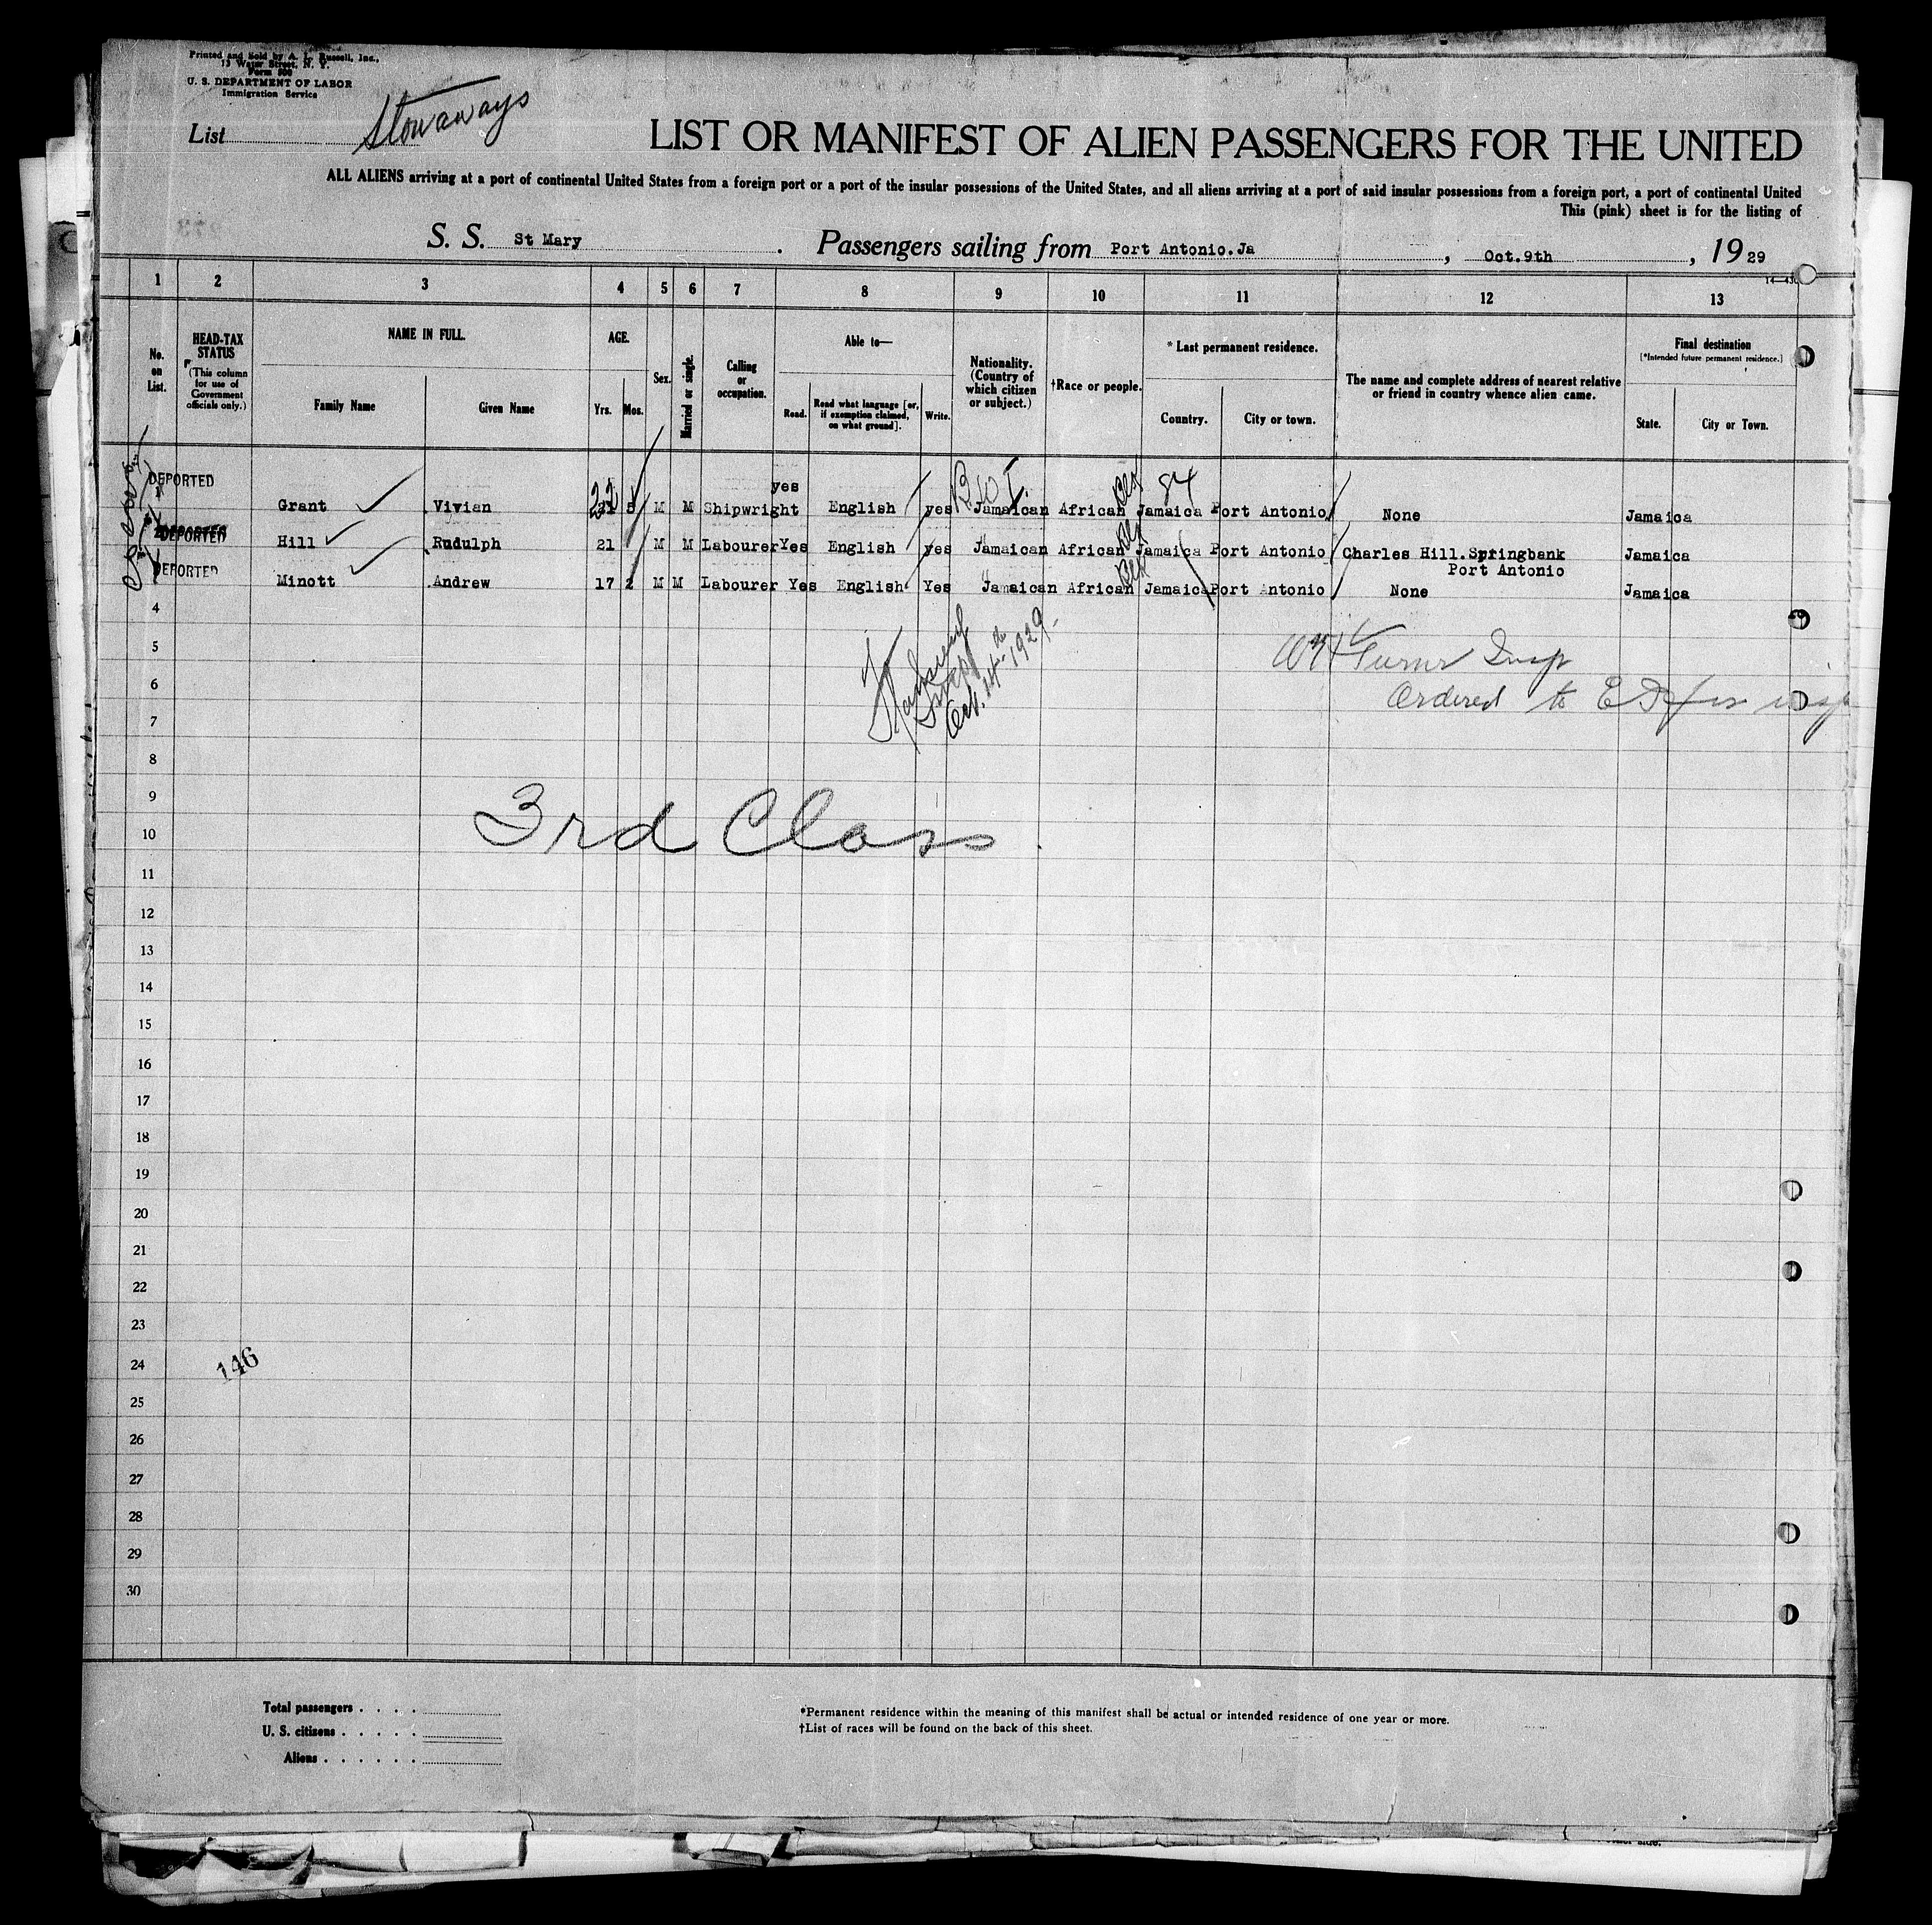 Printed and Sold by A. L. Russell, Inc.,
13 Water Street, N. Y.
Form 500
U. S. DEPARTMENT OF LABOR
Immigration Service
List Stowaways
LIST OR MANIFEST OF ALIEN PASSENGERS FOR THE UNITED
ALL ALIENS arriving at a port of continental United States from a foreign port or a port of the insular possessions of the United States, and all aliens arriving at a port of said insular possessions from a foreign port, a port of continental United
This (pink) sheet is for the listing of
S. S. St Mary . Passengers sailing from Port Antonio.Ja , Oct.9th , 19 29
1 2 3 4 5 6 7 8 9 10 11 12 13
No. on List.
HEAD-TAX STATUS
(This column for use of Government officials only.)
NAME IN FULL.
Family Name
Given Name
AGE.
Yrs.
Mos.
Sex.
Married or single.
Calling or occupation.
Able to—
Read.
Read what language [or, if exemption claimed, on what ground].
Write.
Nationality. (Country of which citizen or subject.)
†Race or people.
* Last permanent residence.
Country.
City or town.
The name and complete address of nearest relative or friend in country whence alien came.
Final destination
[*Intended future permanent residence.]
State.
City or Town.
DEPORTED
yes
22
B.W.I.
Blk
84
Grant Vivian M M Shipwright English yes Jamaican African Jamaica Port Antonio None Jamaica
DEPORTED
Hill Rudulph 21 M M Labourer Yes English yes Jamaican African Blk Jamaica Port Antonio Charles Hill.Springbank Jamaica
Port Antonio
DEPORTED
Minott Andrew 17 2 M M Labourer Yes English Yes Jamaican African Blk Jamaica Port Antonio None Jamaica
4
5
6
7
8
9
10
11
12
13
14
15
16
17
18
19
20
21
22
23
24
25
26
27
28
29
30
Oct. 14th 1929
Turner Insp
Ordered to
3rd Class
146
Total passengers . . . .
U. S. citizens . . . . .
Aliens . . . . . .
*Permanent residence within the meaning of this manifest shall be actual or intended residence of one year or more.
†List of races will be found on the back of this sheet.